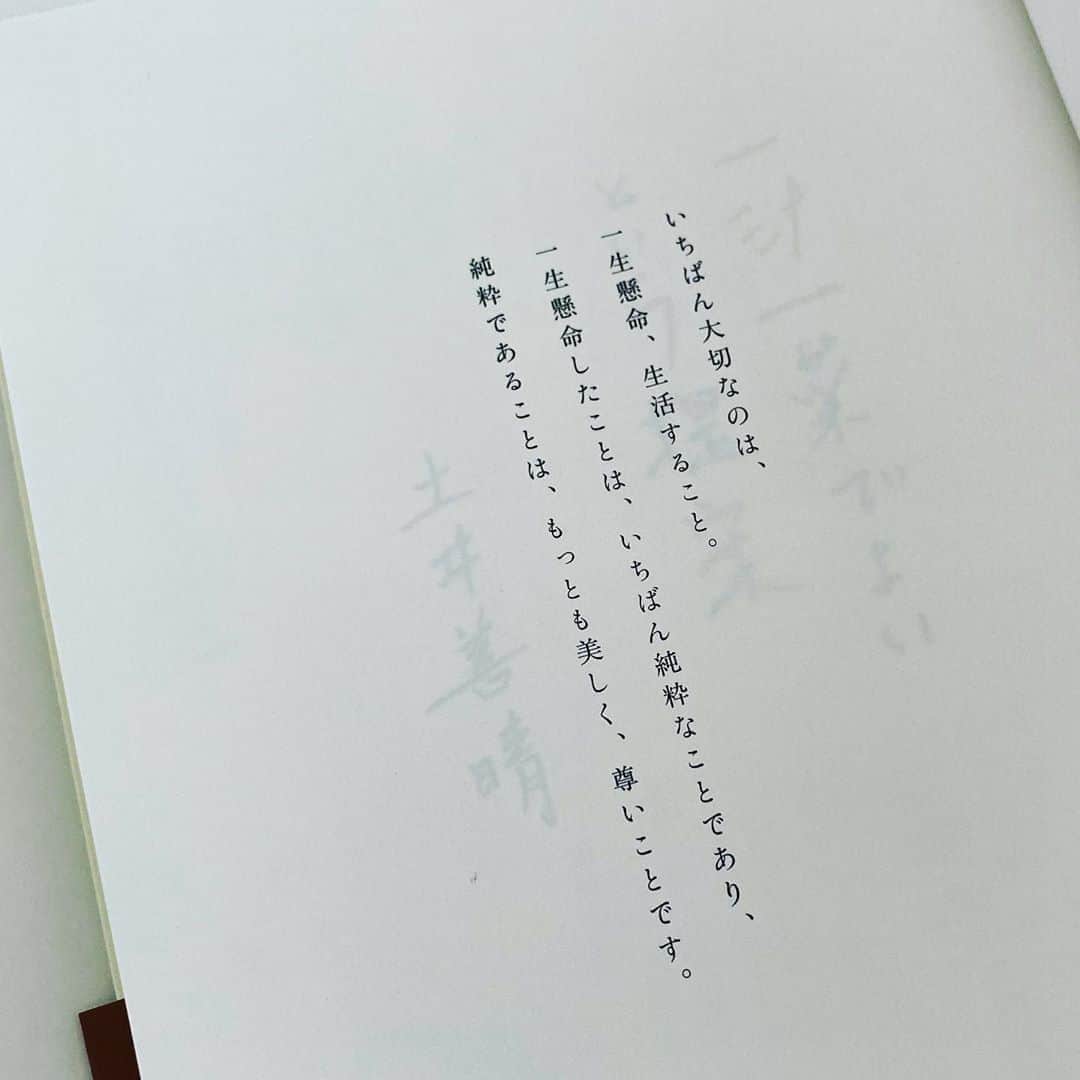 いちばん大切なのは、
一生懸命、生活すること。
一生懸命したことは、いちばん純粋なことであり、
純粋であることは、もっとも美しく、尊いことです。
一汁一菜でよい
土井善晴